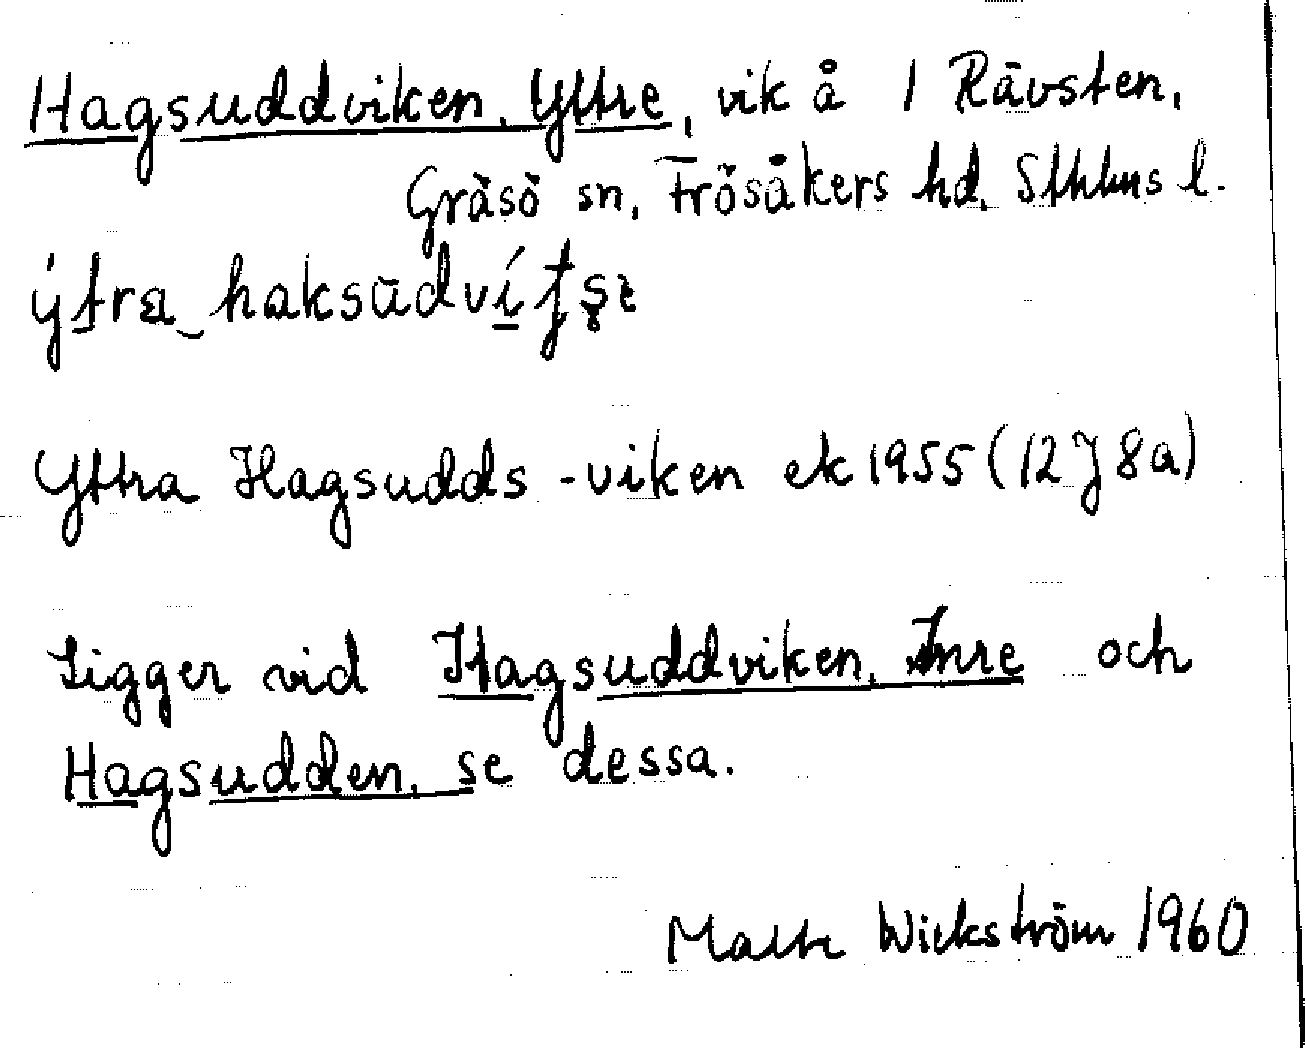 Hagsuddviken, Yttre, vik å 1 Rävsten,
Gräsö sn, Frösåkers hd, Sthlms l.
Yttra Hagsudds-viken ek 1955 (12J 8a)
Ligger vid Hagsuddviken, Inre och
Hagsudden, se dessa.
Malte Wickström 1960